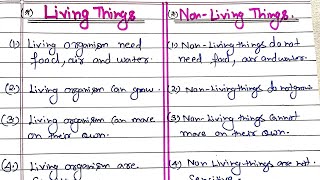 (अ) Living Things
(1.) Living organism need
food, air and water.
(2.) Living organism can grow.
(3.) Living organism can move
on their own.
(4.) Living organism are
(ब) Non-Living Things.
(1) Non-Living things do not
need food, air and water.
(2) Non Living things do not grow.
(3) Non Living things cannot
move on their own.
(4) Non Living-things are not
Sensitive.